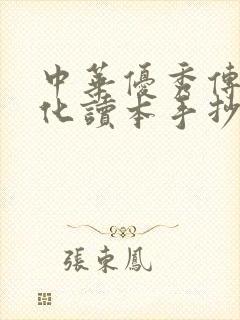 中華優秀傳
化讀本手抄
張東鳳